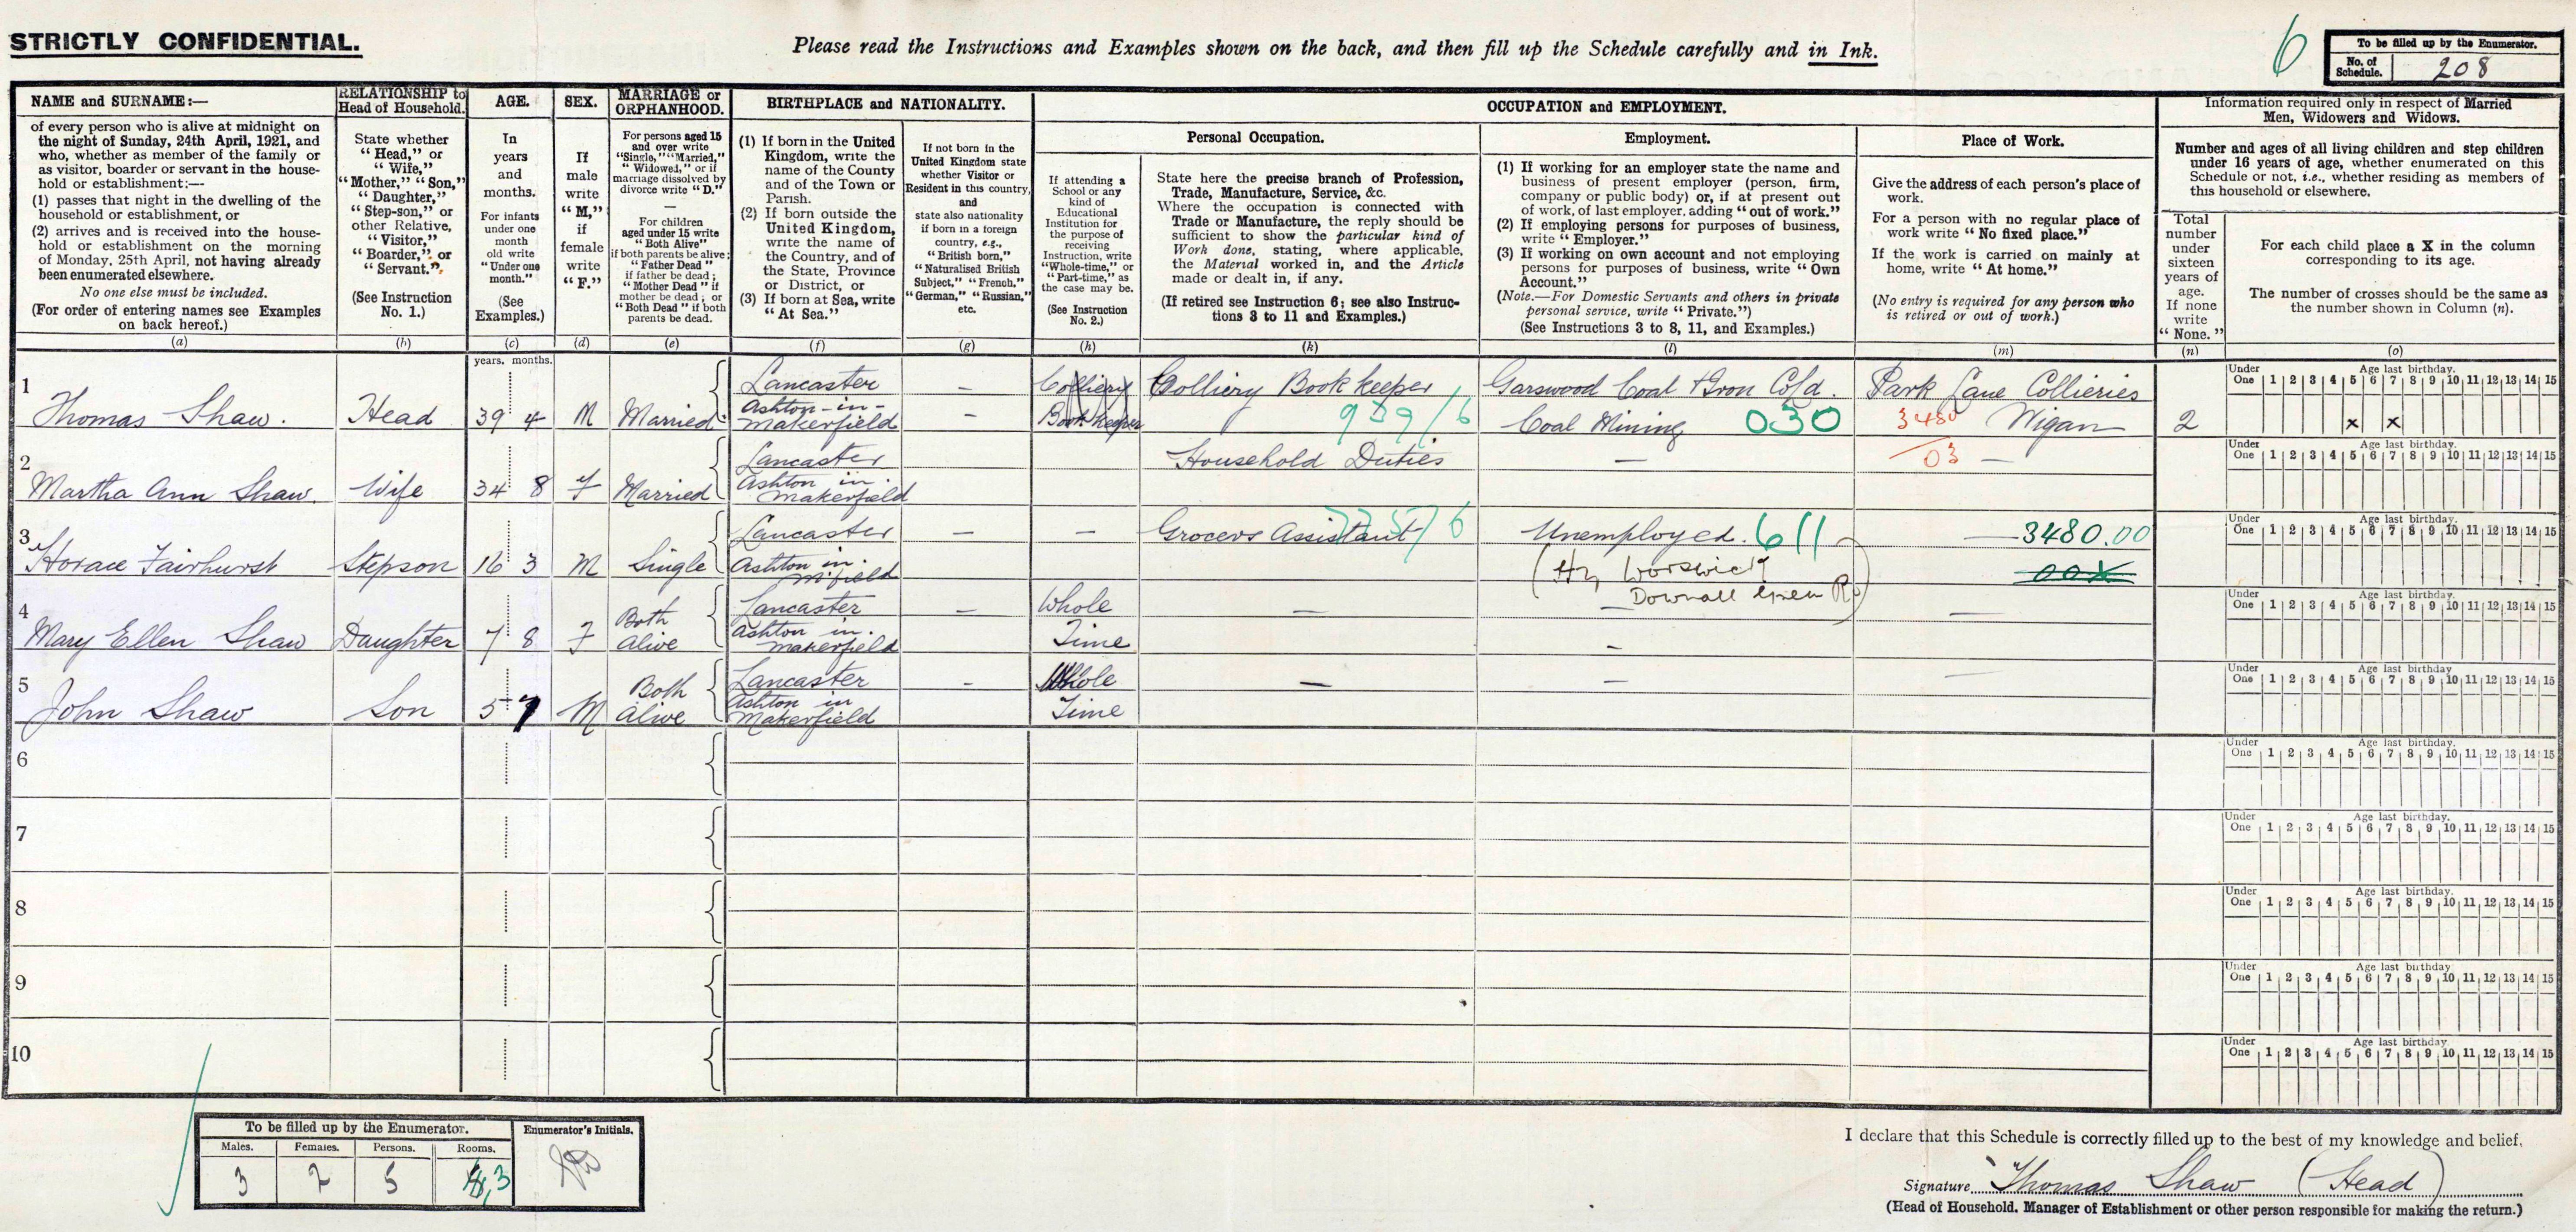 STRICTLY CONFIDENTIAL.
Please read the Instructions and Examples shown on the back, and then fill up the Schedule carefully and in Ink.
6
To be filled up by the Enumerator.
No. of Schedule. 208
NAME and SURNAME:—
of every person who is alive at midnight on
the night of Sunday, 24th April, 1921, and
who, whether as member of the family or
as visitor, boarder or servant in the house-
hold or establishment:—
(1) passes that night in the dwelling of the
household or establishment, or
(2) arrives and is received into the house-
hold or establishment on the morning
of Monday, 25th April, not having already
been enumerated elsewhere.
No one else must be included.
(For order of entering names see Examples
on back hereof.)
(a)
RELATIONSHIP to
Head of Household.
State whether
"Head," or
"Wife,"
"Mother," "Son,"
"Daughter,"
"Step-son," or
other Relative,
"Visitor,"
"Boarder," or
"Servant."
(See Instruction
No. 1.)
(b)
AGE.
In
years
and
months.
For infants
under one
month
old write
"Under one
month."
(See
Examples.)
(c)
SEX.
If
male
write
"M,"
if
female
write
"F."
(d)
MARRIAGE or
ORPHANHOOD.
For persons aged 15
and over write
"Single," "Married,"
"Widowed," or if
marriage dissolved by
divorce write "D."
—
For children
aged under 15 write
"Both Alive"
if both parents be alive;
"Father Dead"
if father be dead;
"Mother Dead" if
mother be dead; or
"Both Dead" if both
parents be dead.
(e)
BIRTHPLACE and NATIONALITY.
(1) If born in the United
Kingdom, write the
name of the County
and of the Town or
Parish.
(2) If born outside the
United Kingdom,
write the name of
the Country, and of
the State, Province
or District, or
(3) If born at Sea, write
"At Sea."
(f)
If not born in the
United Kingdom state
whether Visitor or
Resident in this country,
and
state also nationality
if born in a foreign
country, e.g.,
"British born,"
"Naturalised British
Subject," "French,"
"German," "Russian,"
etc.
(g)
OCCUPATION and EMPLOYMENT.
Personal Occupation.
If attending a
School or any
kind of
Educational
Institution for
the purpose of
receiving
Instruction, write
"Whole-time," or
"Part-time," as
the case may be.
(See Instruction
No. 2.)
(h)
State here the precise branch of Profession,
Trade, Manufacture, Service, &c.
Where the occupation is connected with
Trade or Manufacture, the reply should be
sufficient to show the particular kind of
Work done, stating, where applicable,
the Material worked in, and the Article
made or dealt in, if any.
(If retired see Instruction 6; see also Instruc-
tions 3 to 11 and Examples.)
(k)
Employment.
(1) If working for an employer state the name and
business of present employer (person, firm,
company or public body) or, if at present out
of work, of last employer, adding "out of work."
(2) If employing persons for purposes of business,
write "Employer."
(3) If working on own account and not employing
persons for purposes of business, write "Own
Account."
(Note.—For Domestic Servants and others in private
personal service, write "Private.")
(See Instructions 3 to 8, 11, and Examples.)
(l)
Place of Work.
Give the address of each person's place of
work.
For a person with no regular place of
work write "No fixed place."
If the work is carried on mainly at
home, write "At home."
(No entry is required for any person who
is retired or out of work.)
(m)
Information required only in respect of Married
Men, Widowers and Widows.
Number and ages of all living children and step children
under 16 years of age, whether enumerated on this
Schedule or not, i.e., whether residing as members of
this household or elsewhere.
Total
number
under
sixteen
years of
age.
If none
write
"None."
(n)
For each child place a X in the column
corresponding to its age.
The number of crosses should be the same as
the number shown in Column (n).
(o)
years. months.
1
Thomas Shaw. Head 39 4 M Married
Lancaster
Ashton-in-
Makerfield
—
-
Colliery
Book keeper
Colliery Book keeper
939/6
Garswood Coal & Iron Co Ld.
Coal Mining 030
Park Lane Collieries
3480 Wigan
03
2
Under One 1 2 3 4 5 6 7 8 9 10 11 12 13 14 15
Age last birthday.
x x
2
Martha Ann Shaw. Wife 34 8 F Married
Lancaster
Ashton in
Makerfield
Household Duties
— —
Under One 1 2 3 4 5 6 7 8 9 10 11 12 13 14 15
Age last birthday.
3
Horace Fairhurst Stepson 16 3 M Single
Lancaster
Ashton in
M'field
— —
Grocers Assistant
Unemployed. 611
(Hy Worswick
Downall Green Rd)
— 3480.00
00X
Under One 1 2 3 4 5 6 7 8 9 10 11 12 13 14 15
Age last birthday.
4
Mary Ellen Shaw Daughter 7 8 F Both Alive
Lancaster
Ashton in
Makerfield
—
Whole
Time
— — — —
Under One 1 2 3 4 5 6 7 8 9 10 11 12 13 14 15
Age last birthday.
5
John Shaw Son 5 7 M Both Alive
Lancaster
Ashton in
Makerfield
-
Whole
Time
— — —
Under One 1 2 3 4 5 6 7 8 9 10 11 12 13 14 15
Age last birthday
6
Under One 1 2 3 4 5 6 7 8 9 10 11 12 13 14 15
Age last birthday.
7
Under One 1 2 3 4 5 6 7 8 9 10 11 12 13 14 15
Age last birthday.
8
Under One 1 2 3 4 5 6 7 8 9 10 11 12 13 14 15
Age last birthday.
9
Under One 1 2 3 4 5 6 7 8 9 10 11 12 13 14 15
Age last birthday
10
Under One 1 2 3 4 5 6 7 8 9 10 11 12 13 14 15
Age last birthday
To be filled up by the Enumerator.
Males. Females. Persons. Rooms.
3 2 5 3
Enumerator's Initials.
I declare that this Schedule is correctly filled up to the best of my knowledge and belief.
Signature Thomas Shaw (Head)
(Head of Household, Manager of Establishment or other person responsible for making the return.)